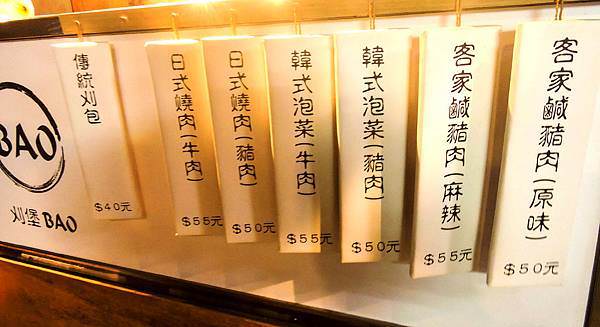 BAO
刈堡 BAO
傳統刈包
$40元
日式燒肉(牛肉)
$55元
日式燒肉(豬肉)
$50元
韓式泡菜(牛肉)
$55元
韓式泡菜(豬肉)
$50元
客家鹹豬肉(麻辣)
$55元
客家鹹豬肉(原味)
$50元